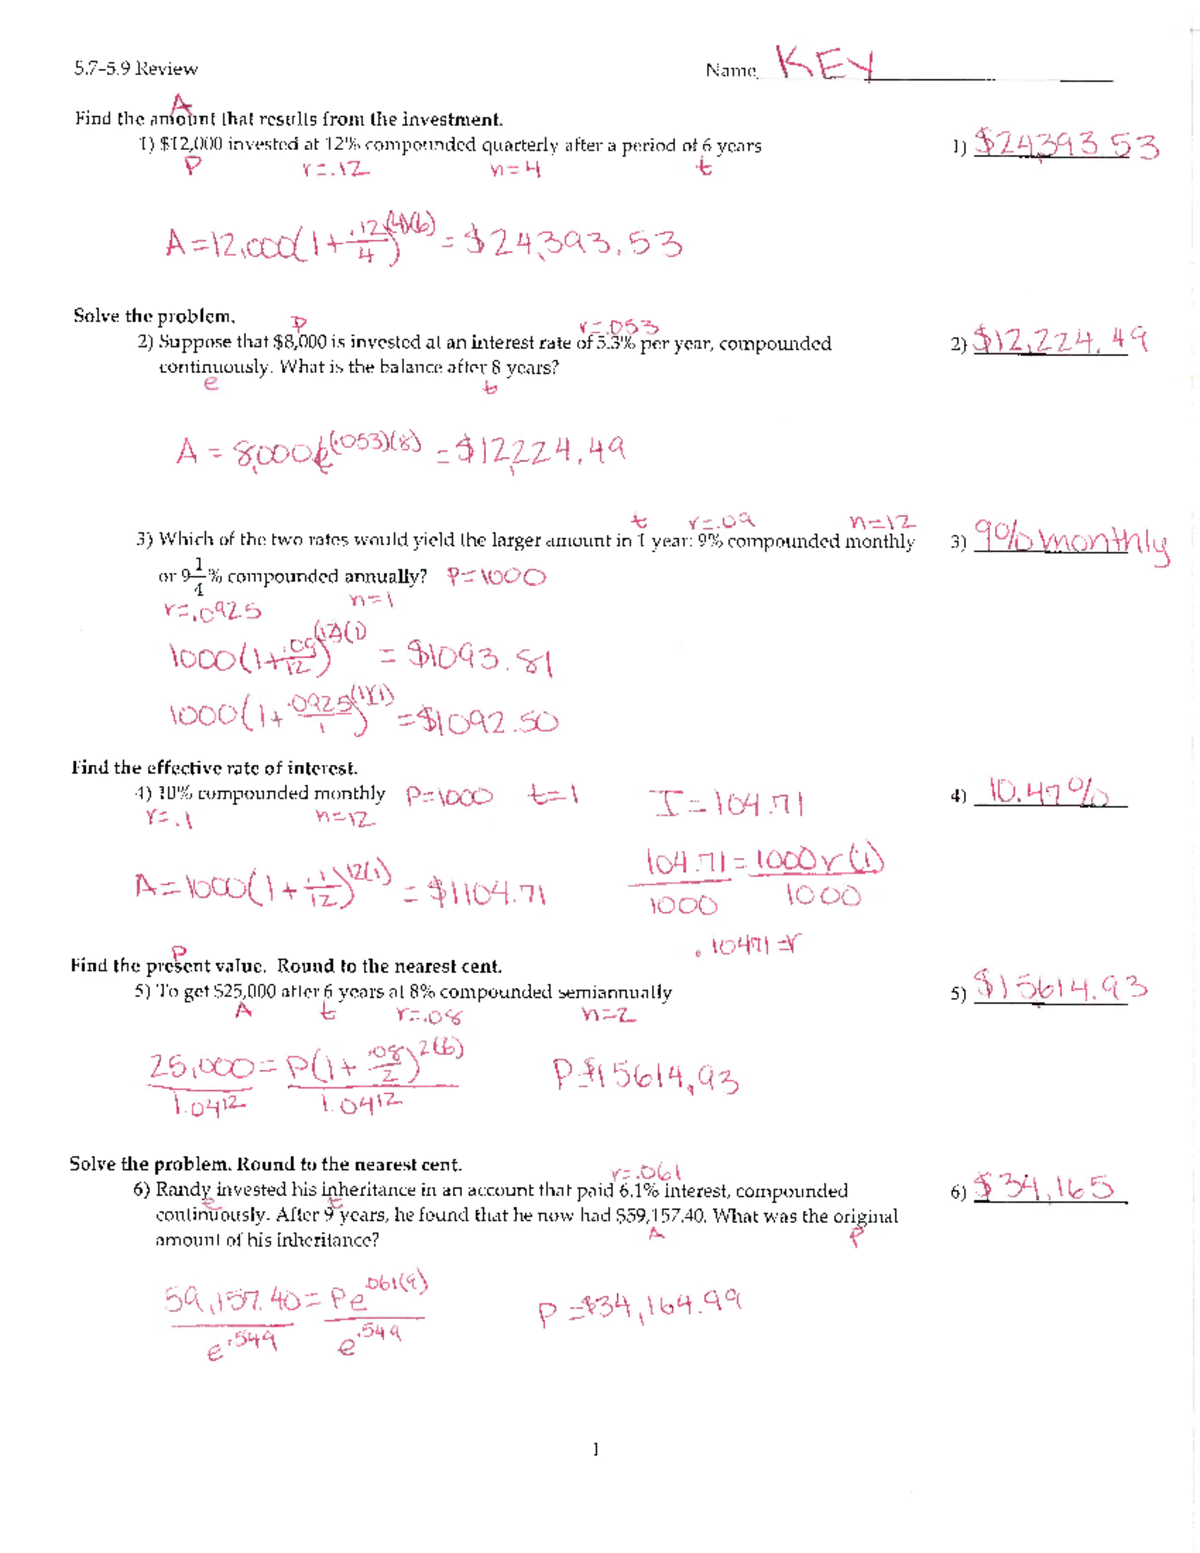 5.7-5.9 Review Name KEY
A
Find the amount that results from the investment.
1) $12,000 invested at 12% compounded quarterly after a period of 6 years 1) $24,393.53
P r=.12 n=4 t
A=12,000(1+.12/4)^(4)(6) = $24,393.53
Solve the problem.
P r=.053
2) Suppose that $8,000 is invested at an interest rate of 5.3% per year, compounded 2) $12,224.49
continuously. What is the balance after 8 years?
e t
A = 8,000e^(.053)(8) = $12,224.49
t r=.09 n=12
3) Which of the two rates would yield the larger amount in 1 year: 9% compounded monthly 3) 9% monthly
or 9 1/4 % compounded annually? P=1000
r=.0925 n=1
1000(1+.09/12)^(12)(1) = $1093.81
1000(1+.0925/1)^(1)(1) = $1092.50
Find the effective rate of interest.
4) 10% compounded monthly P=1000 t=1 I=104.71 4) 10.47%
r=.1 n=12
A=1000(1+.1/12)^12(1) = $1104.71
104.71=1000r(1)
1000 1000
.10471=r
P
Find the present value. Round to the nearest cent.
5) To get $25,000 after 6 years at 8% compounded semiannually 5) $15614.93
A t r=.08 n=2
25,000=P(1+.08/2)^2(6) P=$15614.93
1.04^12 1.04^12
Solve the problem. Round to the nearest cent.
r=.061
6) Randy invested his inheritance in an account that paid 6.1% interest, compounded 6) $34,165
e t
continuously. After 9 years, he found that he now had $59,157.40. What was the original
A P
amount of his inheritance?
59,157.40=Pe^.061(9) P=$34,164.99
e^.549 e^.549
1